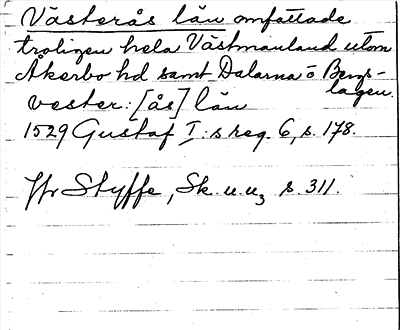 Västerås län omfattade
troligen hela Västmanland utom
Åkerbo hd samt Dalarna o Bergs-
lagen.
vester: [ås] län
1529 Gustaf I:s reg. 6, s. 178.
Jfr Styffe, Sk. u. u₃ s. 311.